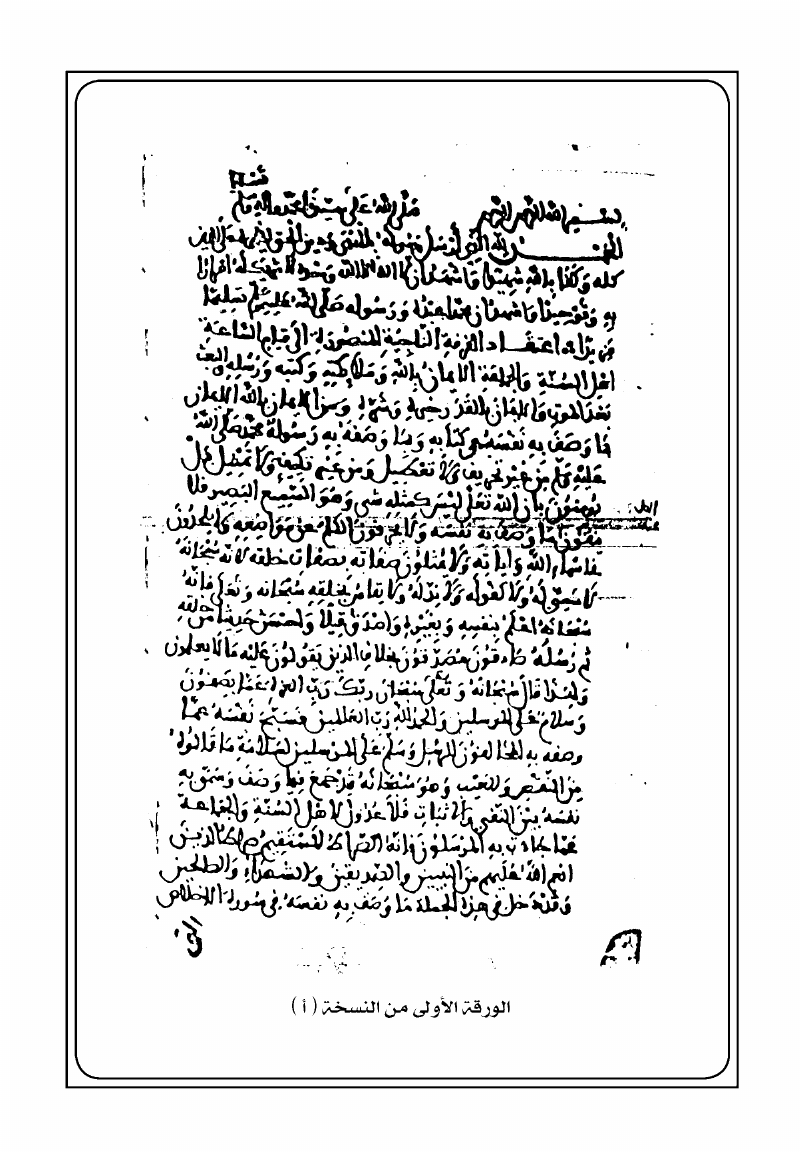 تسليما
بسم الله الرحمن الرحيم صلى الله على سيدنا محمد واله وسلم
الحمد لله الذي أرسل رسوله بالهدى ودين الحق ليظهره على الدين
كله وكفا بالله شهيدا وأشهد أن لا اله الا الله وحده لا شريك له اقرارا
به وتوحيدا وأشهد أن محمدا عبده ورسوله صلى الله عليه وسلم تسليما
مزيدا اعتقاد الفرقة الناجية المنصورة إلى قيام الساعة
اهل السنة والجماعة الايمان بالله وملائكته وكتبه ورسله والبعث
بعد الموت والايمان بالقدر خيره وشره ومن الايمان بالله الايمان
بما وصف به نفسه في كتابه وبما وصفه به رسوله محمد صلى الله
عليه وسلم من غير تحريف ولا تعطيل ومن غير تكييف ولا تمثيل بل
يؤمنون بان الله تعالى ليس كمثله شي وهو السميع البصير فلا
ينفون عنه ما وصف به نفسه ولا يحرفون الكلم عن مواضعه ولا يلحدون
في اسماء الله وآياته ولا يمثلون صفاته بصفات خلقه لانه سبحانه
لا سمي له ولا كفو له ولا ند له ولا يقاس بخلقه سبحانه وتعالى فانه
سبحانه اعلم بنفسه وبغيره واصدق قيلا واحسن حديثا من خلقه
ثم رسله صادقون مصدقون بخلاف الذين يقولون عليه ما لا يعلمون
ولهذا قال سبحانه وتعالى سبحان ربك رب العزة عما يصفون
وسلام على المرسلين والحمد لله رب العالمين فسبح نفسه عما
وصفه به المخالفون للرسل وسلم على المرسلين لسلامة ما قالوه
من النقص والعيب وهو سبحانه قد جمع فيما وصف وسمى به
نفسه بين النفي والاثبات فلا عدول لاهل السنة والجماعة
عما جاءت به المرسلون فإنه الصراط المستقيم صراط الذين
انعم الله عليهم من النبيين والصديقين والشهداء والصالحين
وقد دخل في هذه الجملة ما وصف به نفسه في سورة الاخلاص
الورقة الأولى من النسخة ( أ )